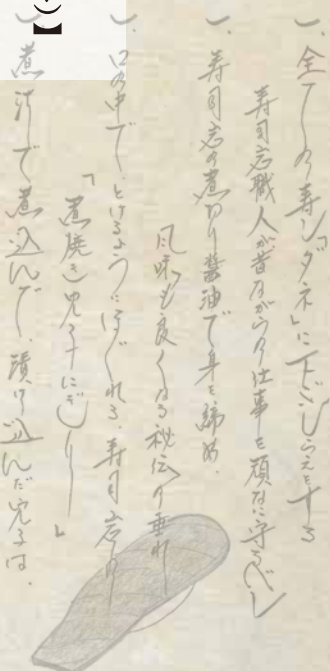 一、全ての寿し「ダネ」に下ごしらえをする
寿司忘職人が昔ながらの仕事を頑なに守るべし
一、寿司忘の煮切り醤油で身を諦め、
風味も良くなる秘伝の垂れ
一、口の中で、とけるようにほぐれる、寿司忘の
「煮焼き穴子にぎり」
一、煮汁で煮込んで、漬け込んだ穴子は、